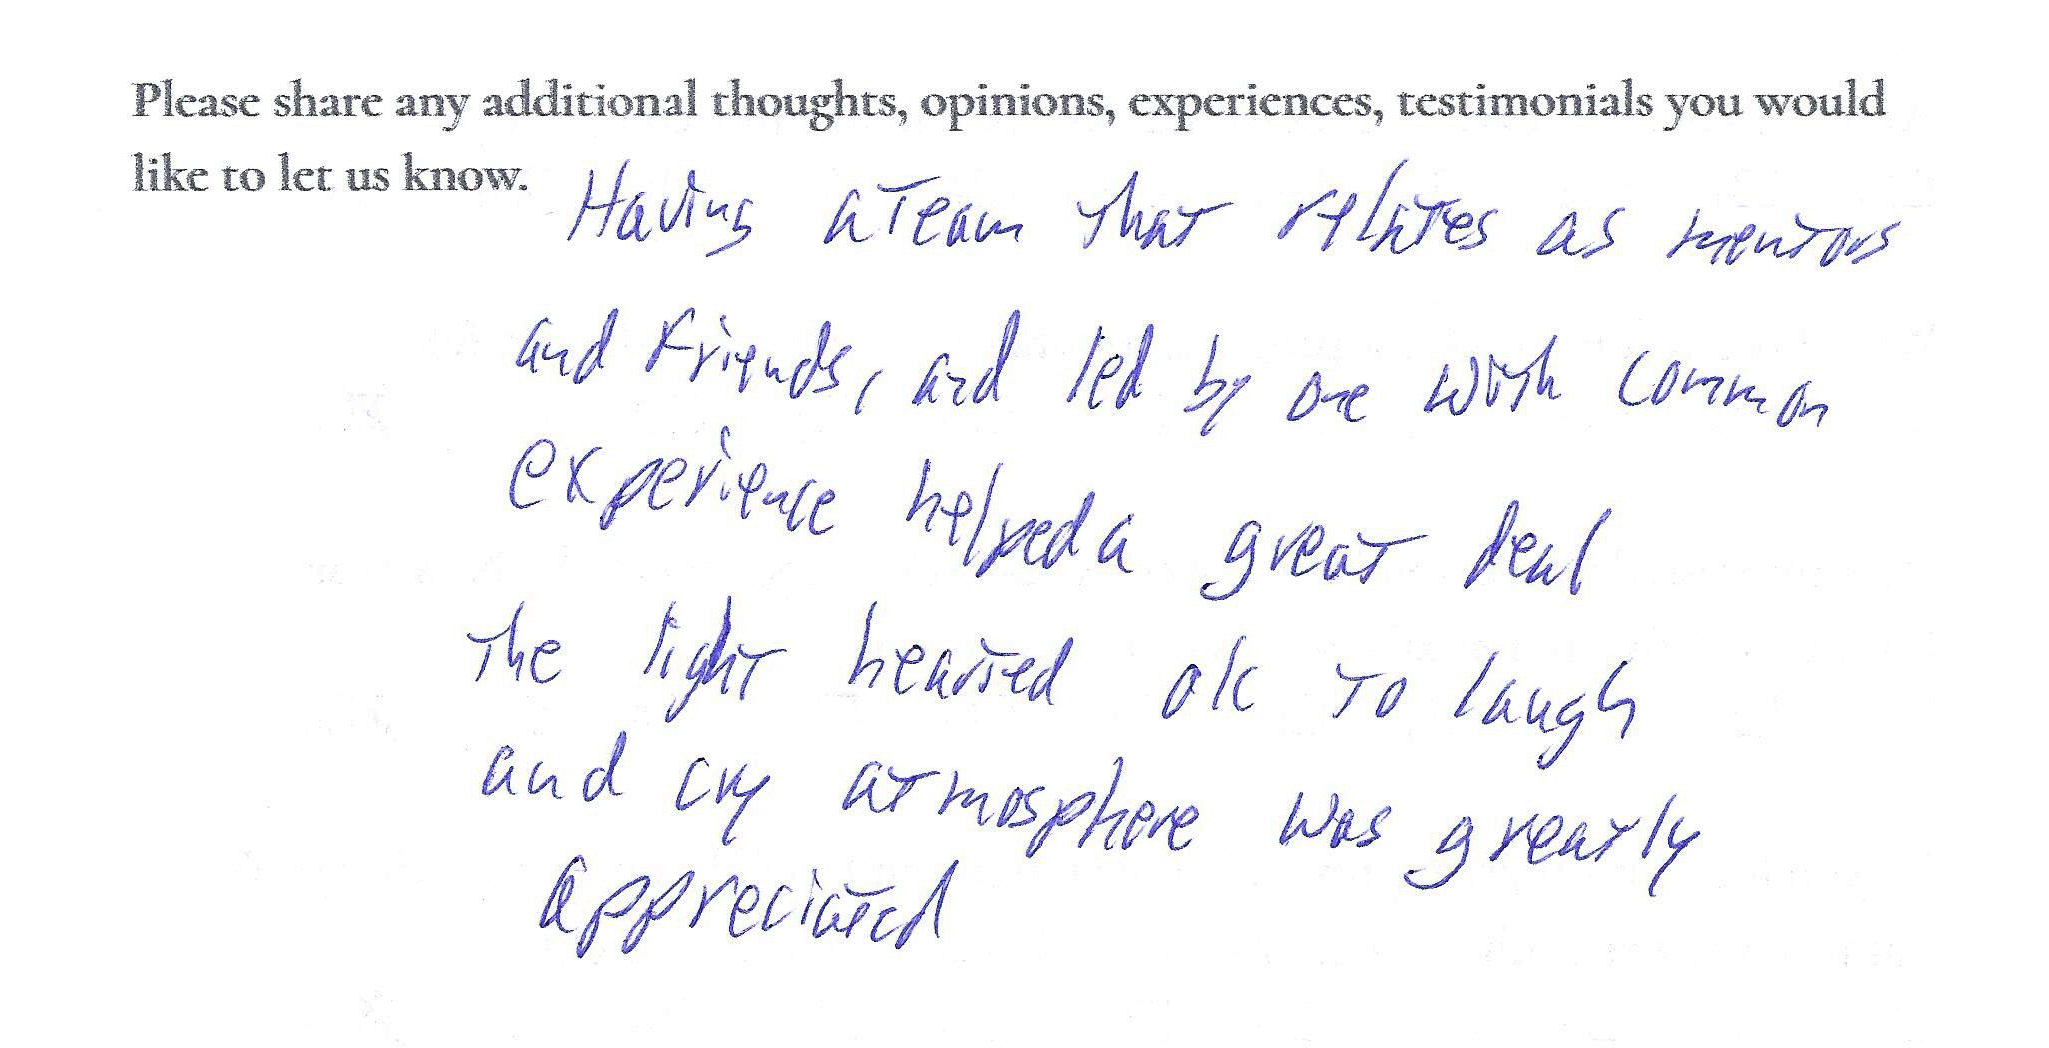 Please share any additional thoughts, opinions, experiences, testimonials you would
like to let us know.
Having a team that relates as mentors
and friends, and led by one with common
experience helped a great deal
The light hearted ok to laugh
and cry atmosphere was greatly
appreciated